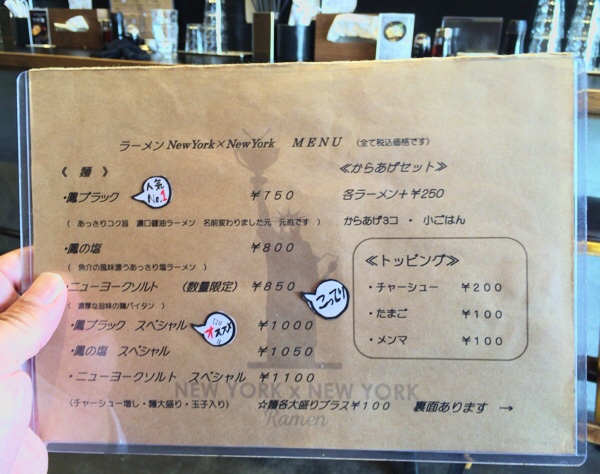 ラーメン NewYork×NewYork MENU (全て税込価格です)
《 麺 》
・鳳ブラック 人気No.1 ¥750
( あっさりコク旨 濃口醤油ラーメン 名前変わりました元 元祖です )
・鳳の塩 ¥800
( 魚介の風味漂うあっさり塩ラーメン )
・ニューヨークソルト (数量限定) ¥850 こってり
( 濃厚な旨味の鶏パイタン )
・鳳ブラック スペシャル オススメ ¥1000
・鳳の塩 スペシャル ¥1050
・ニューヨークソルト スペシャル ¥1100
(チャーシュー増し・麺大盛り・玉子入り) ☆麺各大盛りプラス¥100
≪からあげセット≫
各ラーメン+¥250
からあげ3コ ・ 小ごはん
≪トッピング≫
・チャーシュー ¥200
・たまご ¥100
・メンマ ¥100
裏面あります →
NEW YORK × NEW YORK
Ramen